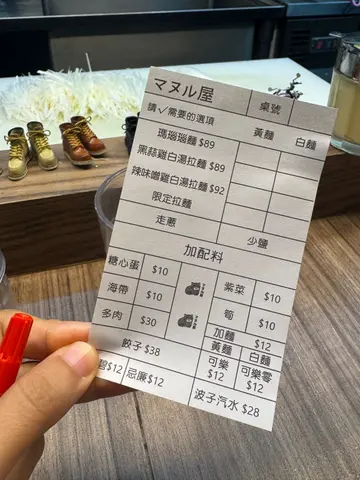 マヌル屋 桌號
請✓需要的選項 黃麵 白麵
瑪瑙瑙麵 $89
黑蒜雞白湯拉麵 $89
辣味噌雞白湯拉麵 $92
限定拉麵
走蔥 少鹽
加配料
糖心蛋 $10 紫菜 $10
海帶 $10 筍 $10
多肉 $30 加麵 $12
黃麵 白麵
餃子 $38 可樂 $12 可樂零 $12
碧 $12 忌廉 $12 波子汽水 $28